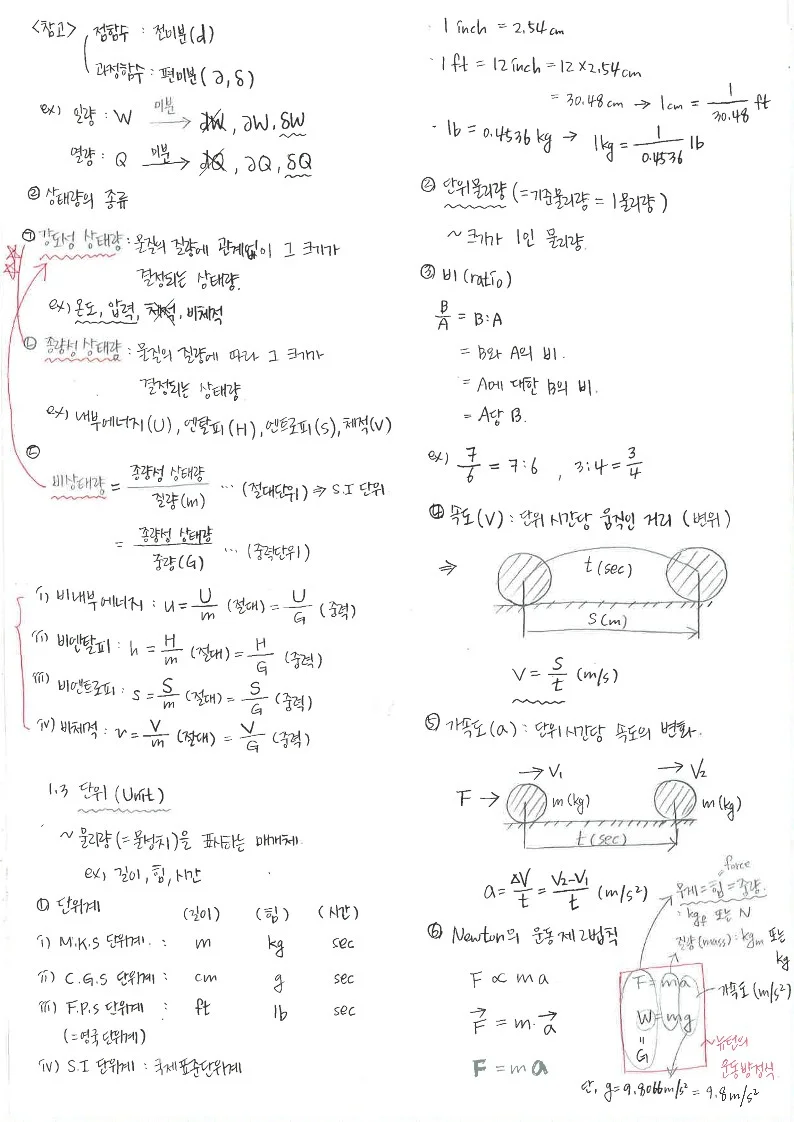 <참고> 점함수 : 전미분(d)
과정함수 : 편미분(∂, δ)
ex) 일량 : W 미분→ dW, ∂W, δW
열량 : Q 미분→ dQ, ∂Q, δQ
② 상태량의 종류
㉠ 강도성 상태량 : 물질의 질량에 관계없이 그 크기가
결정되는 상태량.
ex) 온도, 압력, 체적, 비체적
㉡ 종량성 상태량 : 물질의 질량에 따라 그 크기가
결정되는 상태량
ex) 내부에너지(U), 엔탈피(H), 엔트로피(S), 체적(V)
㉢
비상태량 = 종량성 상태량/질량(m) … (절대단위) ⇒ S.I 단위
= 종량성 상태량/중량(G) … (중력단위)
i) 비내부에너지 : u = U/m (절대) = U/G (중력)
ii) 비엔탈피 : h = H/m (절대) = H/G (중력)
iii) 비엔트로피 : s = S/m (절대) = S/G (중력)
iv) 비체적 : v = V/m (절대) = V/G (중력)
1.3 단위 (Unit)
~ 물리량(=물성치)을 표시하는 매개체.
ex) 길이, 힘, 시간
① 단위계 (길이) (힘) (시간)
i) M.K.S 단위계 : m kg sec
ii) C.G.S 단위계 : cm g sec
iii) F.P.S 단위계 : ft lb sec
(=영국단위계)
iv) S.I 단위계 : 국제표준단위계
· 1 inch = 2.54 cm
· 1 ft = 12 inch = 12×2.54 cm
= 30.48 cm → 1 cm = 1/30.48 ft
· 1 lb = 0.4536 kg → 1 kg = 1/0.4536 lb
② 단위물리량 (=기준물리량 = 1물리량)
~ 크기가 1인 물리량.
③ 비 (ratio)
B/A = B:A
= B와 A의 비.
= A에 대한 B의 비.
= A당 B.
ex) 7/6 = 7:6 , 3:4 = 3/4
④ 속도(V) : 단위 시간당 움직인 거리 (변위)
⇒ t(sec)
S(m)
V = S/t (m/s)
⑤ 가속도(a) : 단위시간당 속도의 변화.
→ V1 → V2
F → m(kg) m(kg)
t(sec)
a = ΔV/t = V2-V1/t (m/s²)
force
무게=힘=중량.
: kgf 또는 N
질량(mass) : kgm 또는
kg
⑥ Newton의 운동 제2법칙
F ∝ ma
F = m·a
F = ma
F = ma
가속도 (m/s²)
W = mg
=
G
~뉴턴의
운동방정식.
단, g = 9.8066m/s² = 9.8m/s²